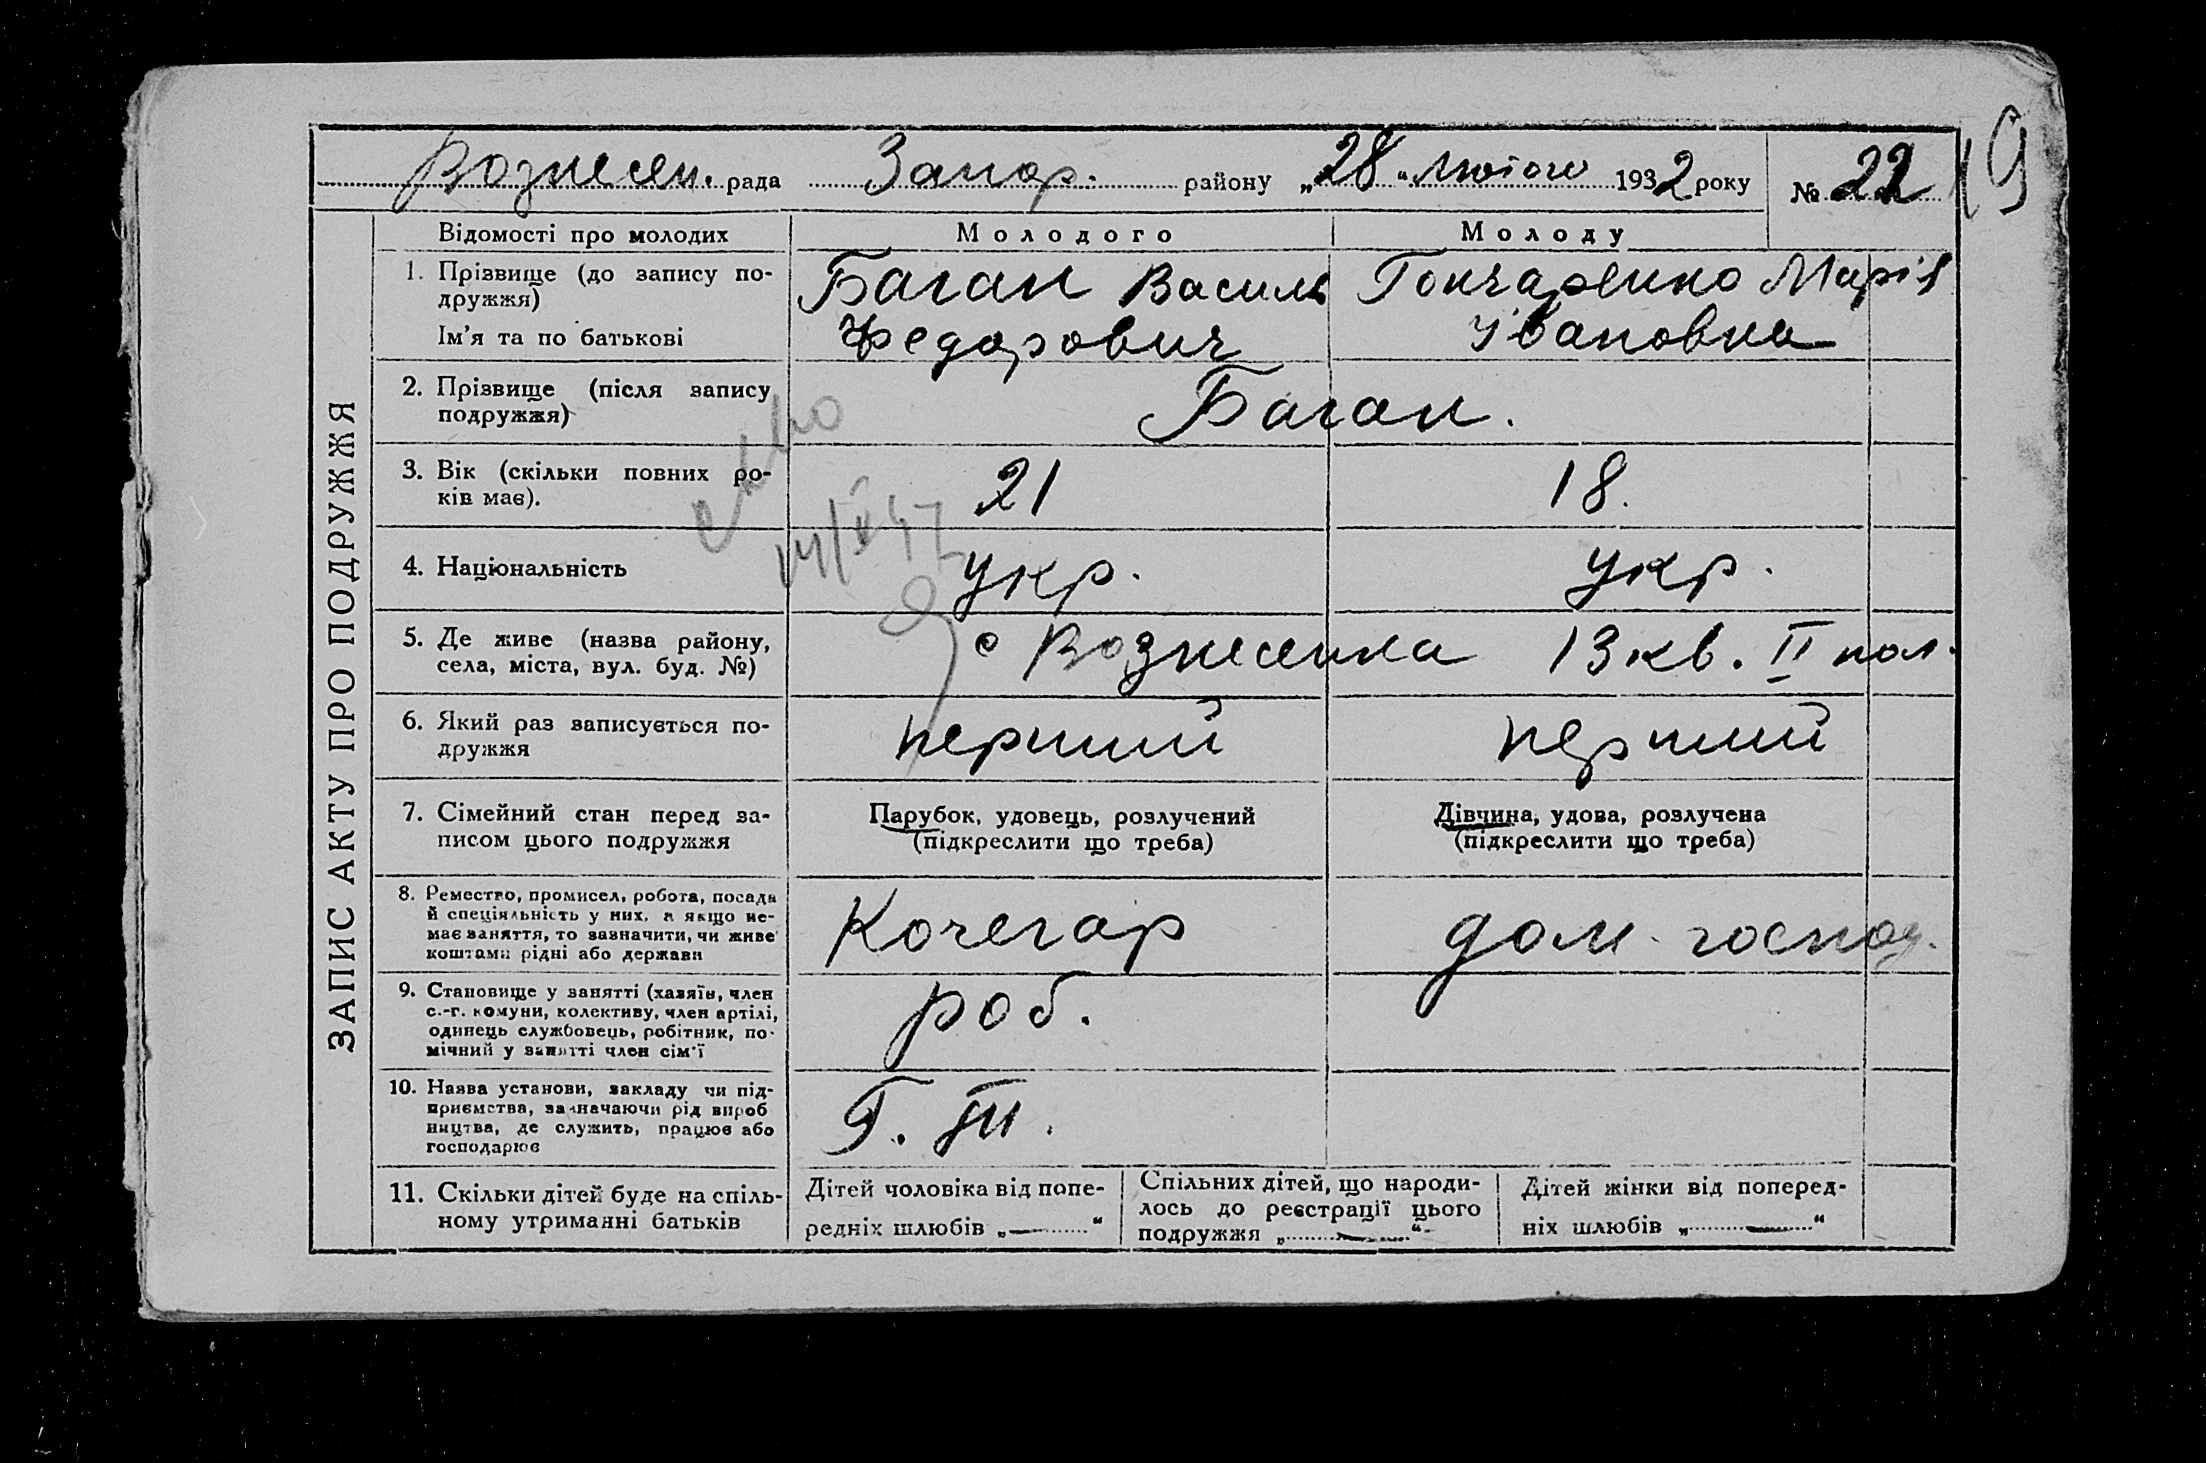 Вознесен. рада Запор. району „28“ лютого 1932 року № 22
19
ЗАПИС АКТУ ПРО ПОДРУЖЖЯ
Відомості про молодих Молодого Молоду
1. Прізвище (до запису по-
дружжя)
Ім'я та по батькові
Баган Василь
Федорович
Гончаренко Марія
Івановна
2. Прізвище (після запису
подружжя)
Баган.
3. Вік (скільки повних ро-
ків має).
21 18.
4. Національність укр. укр.
5. Де живе (назва району,
села, міста, вул. буд. №)
с Вознесенка 13 кв. II пол.
6. Який раз записується по-
дружжя
перший перший
7. Сімейний стан перед за-
писом цього подружжя
Парубок, удовець, розлучений
(підкреслити що треба)
Дівчина, удова, розлучена
(підкреслити що треба)
8. Ремество, промисел, робота, посада
й спеціяльність у них, а якщо не-
має заняття, то зазначити, чи живе
коштами рідні або держави
Кочегар дом. господ.
9. Становище у занятті (хазяїн, член
с.-г. комуни, колективу, член артілі,
одинець службовець, робітник, по-
мічний у занятті член сім'ї
роб.
10. Назва установи, закладу чи під-
приємства, зазначаючи рід вироб
ництва, де служить, працює або
господарює
11. Скільки дітей буде на спіль-
ному утриманні батьків
Дітей чоловіка від попе-
редніх шлюбів „—“
Спільних дітей, що народи-
лось до реєстрації цього
подружжя „—“
Дітей жінки від поперед-
ніх шлюбів „—“